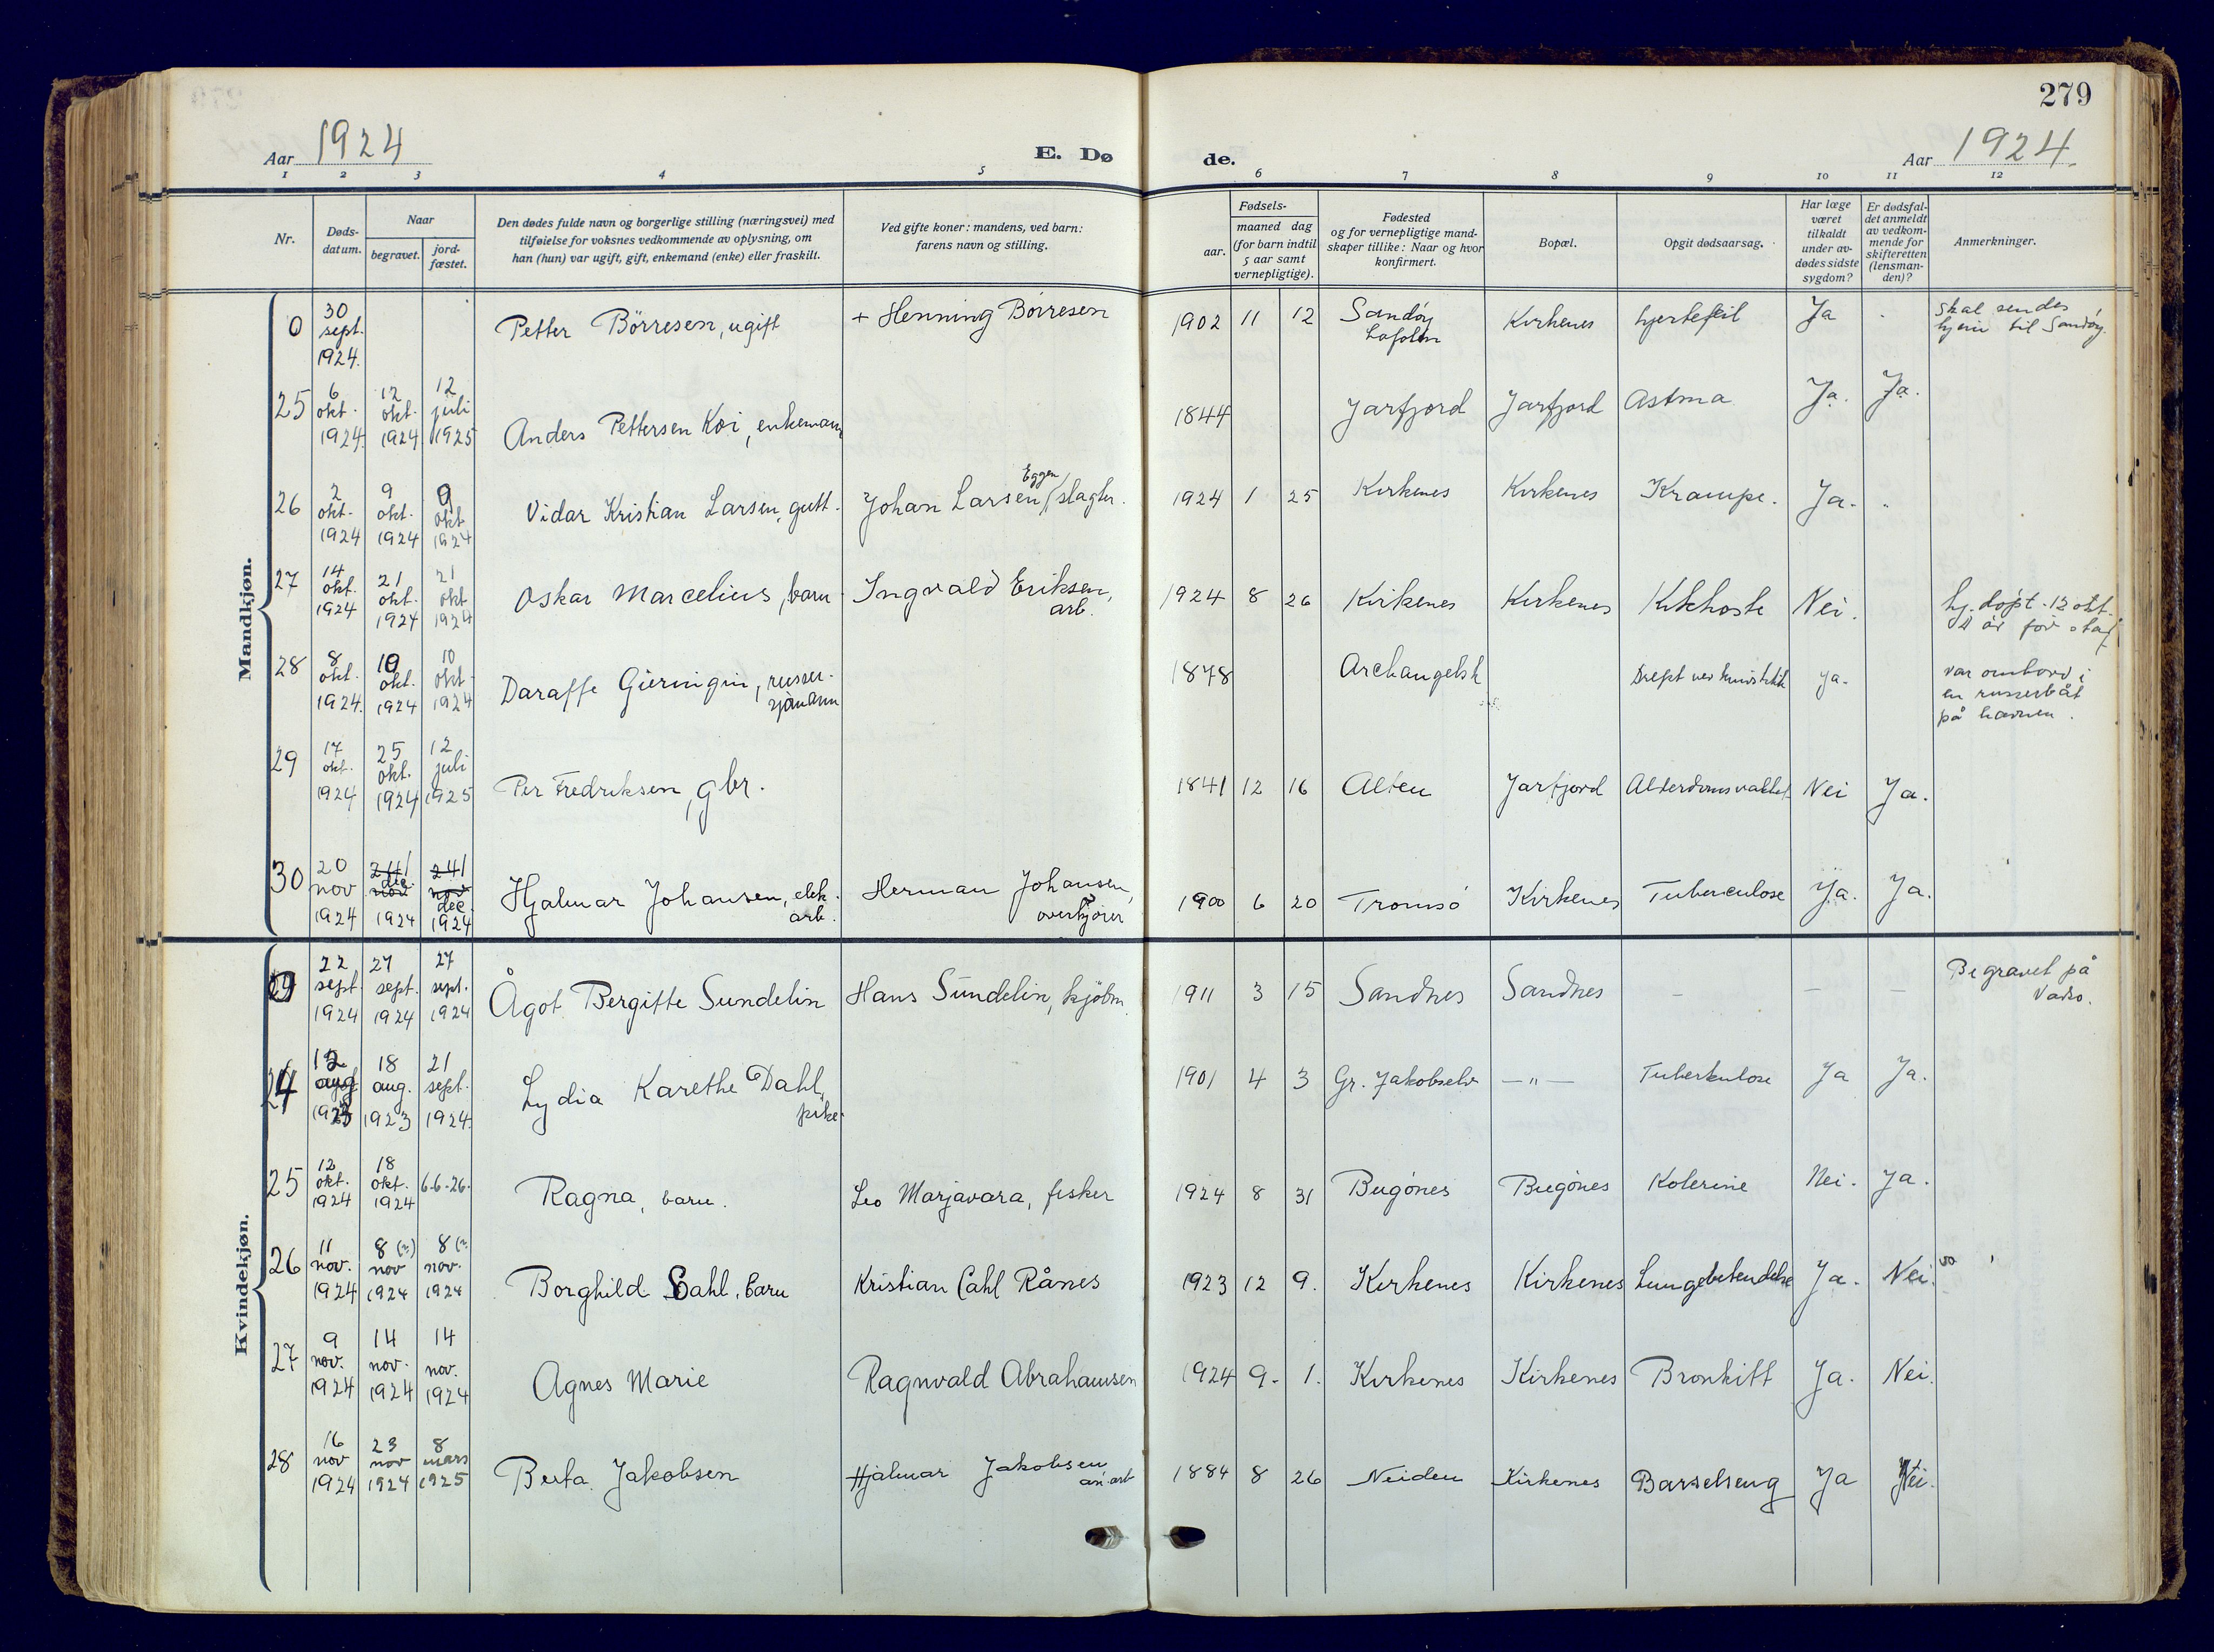 279
Aar 1924
E. Dø
de.
Aar 1924.
1 2 3 4 5 6 7 8 9 10 11 12
Nr.
Døds-
datum.
Naar
begravet.
jord-
fæstet.
Den dødes fulde navn og borgerlige stilling (næringsvei) med
tilføielse for voksnes vedkommende av oplysning, om
han (hun) var ugift, gift, enkemand (enke) eller fraskilt.
Ved gifte koner: mandens, ved barn:
farens navn og stilling.
Fødsels-
aar.
maaned dag
(for barn indtil
5 aar samt
vernepligtige).
Fødested
og for vernepligtige mand-
skaper tillike: Naar og hvor
konfirmert.
Bopæl.
Opgit dødsaarsag.
Har læge
været
tilkaldt
under av-
dødes sidste
sygdom?
Er dødsfal-
det anmeldt
av vedkom-
mende for
skifteretten
(lensman-
den)?
Anmerkninger.
Mandkjøn.
0 30 sept. 1924. Petter Börresen, ugift + Henning Börresen 1902 11 12 Sandöy Kirkenes hjertefeil Ja
Skal sendes
hjem til Sandöy.
25 6 okt. 1924. 12 okt. 1924 12 juli 1925 Anders Pettersen Koi, enkemann 1844 Jarfjord Jarfjord Astma Ja. Ja.
26 2 okt. 1924 9 okt. 1924 9 okt 1924 Vidar Kristian Larsen, gutt. Johan Larsen Eggen / slagter. 1924 1 25 Kirkenes Kirkenes Krampe. Ja.
27 14 okt. 1924 21 okt. 1924 21 okt 1924 Oskar Marcelius, barn Ingvald Eriksen, arb. 1924 8 26 Kirkenes Kirkenes Kikhoste Nei.
hj. döpt. 12 okt.
28 8 okt. 1924. 10 okt. 1924 10 okt. 1924 Daraffe Gieringin, russer. sjömann 1878 Archangelsk Drept ved knivstikk Ja.
var ombord i
en russerbåt
på havnen.
29 17 okt. 1924 25 okt. 1924 12 juli 1925 Per Fredriksen, gbr. 1841 12 16 Alten Jarfjord Alderdomsvakhet Nei Ja.
30 20 nov 1924 24/ nov dec. 1924 24/ nov dec. 1924 Hjalmar Johansen, elek. arb. Herman Johansen, overkjörer 1900 6 20 Tromsö Kirkenes Tuberculose Ja. Ja.
Kvindekjøn.
0 22 sept. 1924 27 sept. 1924 27 sept. 1924 Ågot Bergitte Sundelin Hans Sundelin, kjöbm. 1911 3 15 Sandnes Sandnes — — —
Begravet på
Vadsö.
24 12 aug 1923 18 aug. 1923 21 sept. 1924. Lydia Karethe Dahl, pike. 1901 4 3 Gr. Jakobselv — " — Tuberkulose Ja Ja.
25 12 okt. 1924 18 okt. 1924 6.6.26. Ragna, barn. Leo Marjavara, fisker 1924 8 31 Bugönes Bugönes Kolerine Nei. Ja.
26 11 nov. 1924 8 (?) nov 1924 8 (?) nov. 1924 Borghild Dahl, barn Kristian Dahl Rånes 1923 12 9. Kirkenes Kirkenes Lungebetendelse Ja. Nei.
27 9 nov. 1924 14 nov. 1924 14 nov. 1924 Agnes Marie Ragnvald Abrahamsen 1924 9. 1. Kirkenes Kirkenes Bronkitt Ja. Nei.
28 16 nov 1924 23 nov 1924 8 mars 1925 Berta Jakobsen Hjalmar Jakobsen an.arb 1884 8 26 Neiden Kirkenes Barselseng Ja Nei.